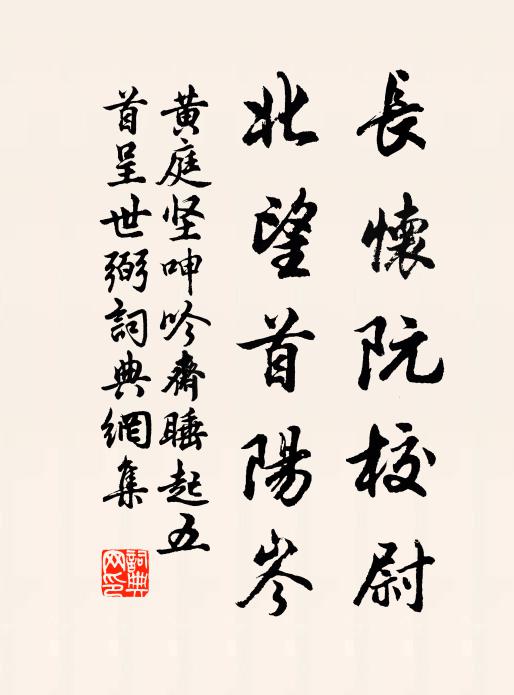 長懷阮校尉
北望首陽岑
黄庭坚呻吟齋睡起五
首呈世弼詞典網集
詞典网印